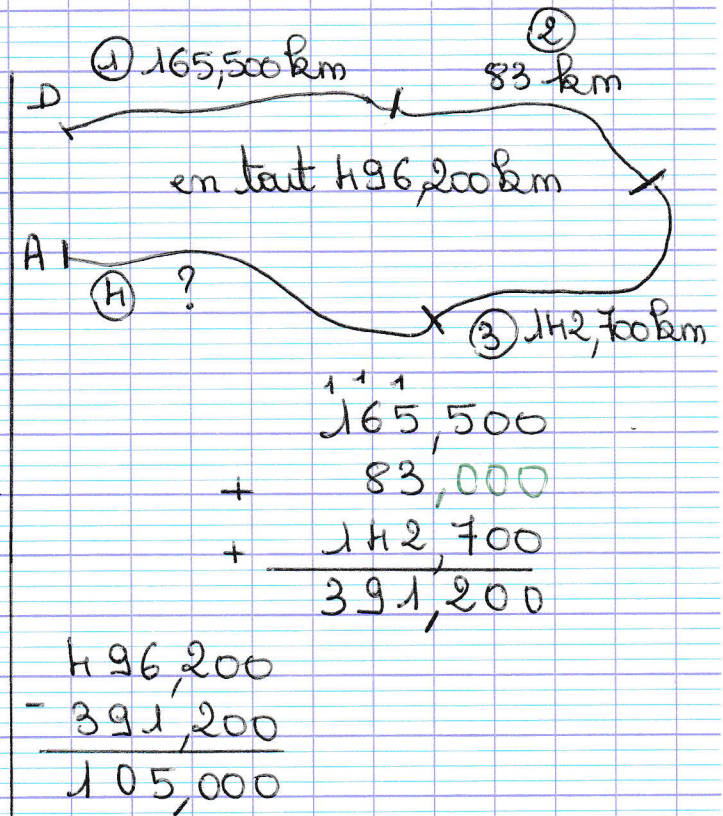 ① 165,500 km
② 83 km
D
en tout 496,200 km
A
④ ?
③ 142,700 km
1 1 1
165,500
+ 83,000
+ 142,700
391,200
496,200
- 391,200
105,000